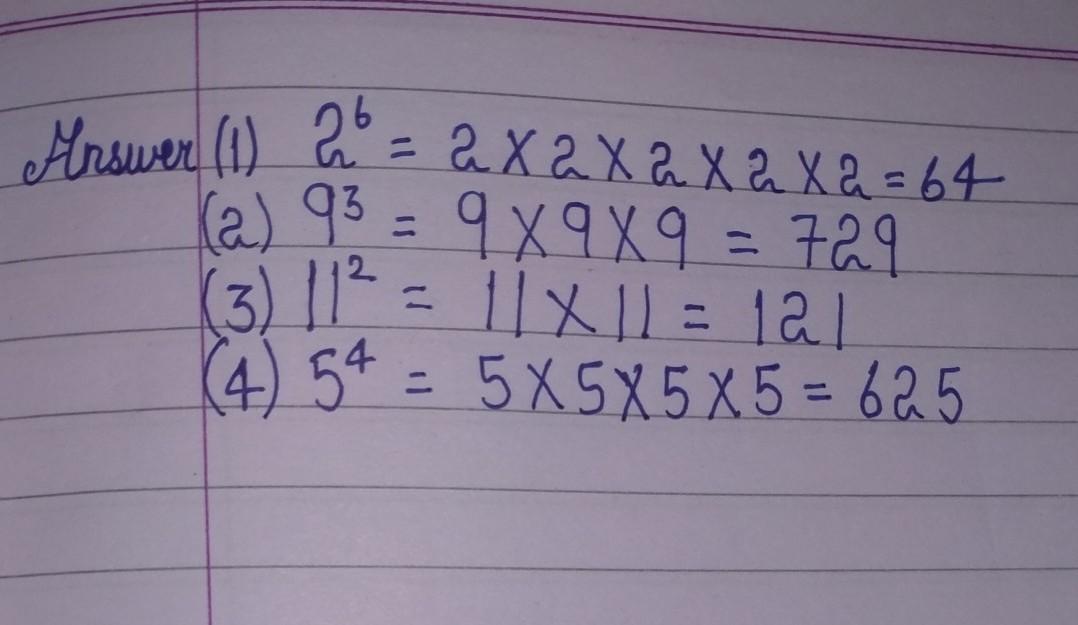 Answer (1) 2⁶ = 2 × 2 × 2 × 2 × 2 = 64
(2) 9³ = 9 × 9 × 9 = 729
(3) 11² = 11 × 11 = 121
(4) 5⁴ = 5 × 5 × 5 × 5 = 625